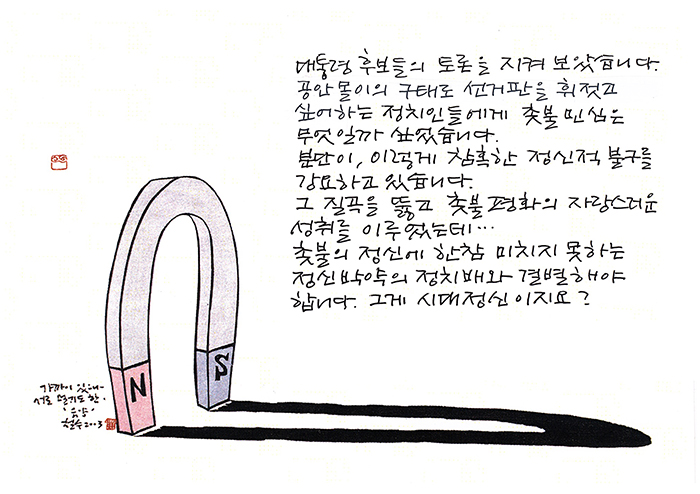 대통령 후보들의 토론을 지켜 보았습니다.
공안몰이의 구태로 선거판을 휘젓고
싶어하는 정치인들에게 촛불 민심은
무엇일까 싶었습니다.
분단이, 이렇게 참혹한 정신적 불구를
강요하고 있습니다.
그 질곡을 뚫고 촛불 평화의 자랑스러운
성취를 이루었는데…
촛불의 정신에 한참 미치지 못하는
정신박약의 정치배와 결별해야
합니다. 그게 시대정신이지요?
N S
가까이 있네-
서로 멀기도 한.
철수 2003